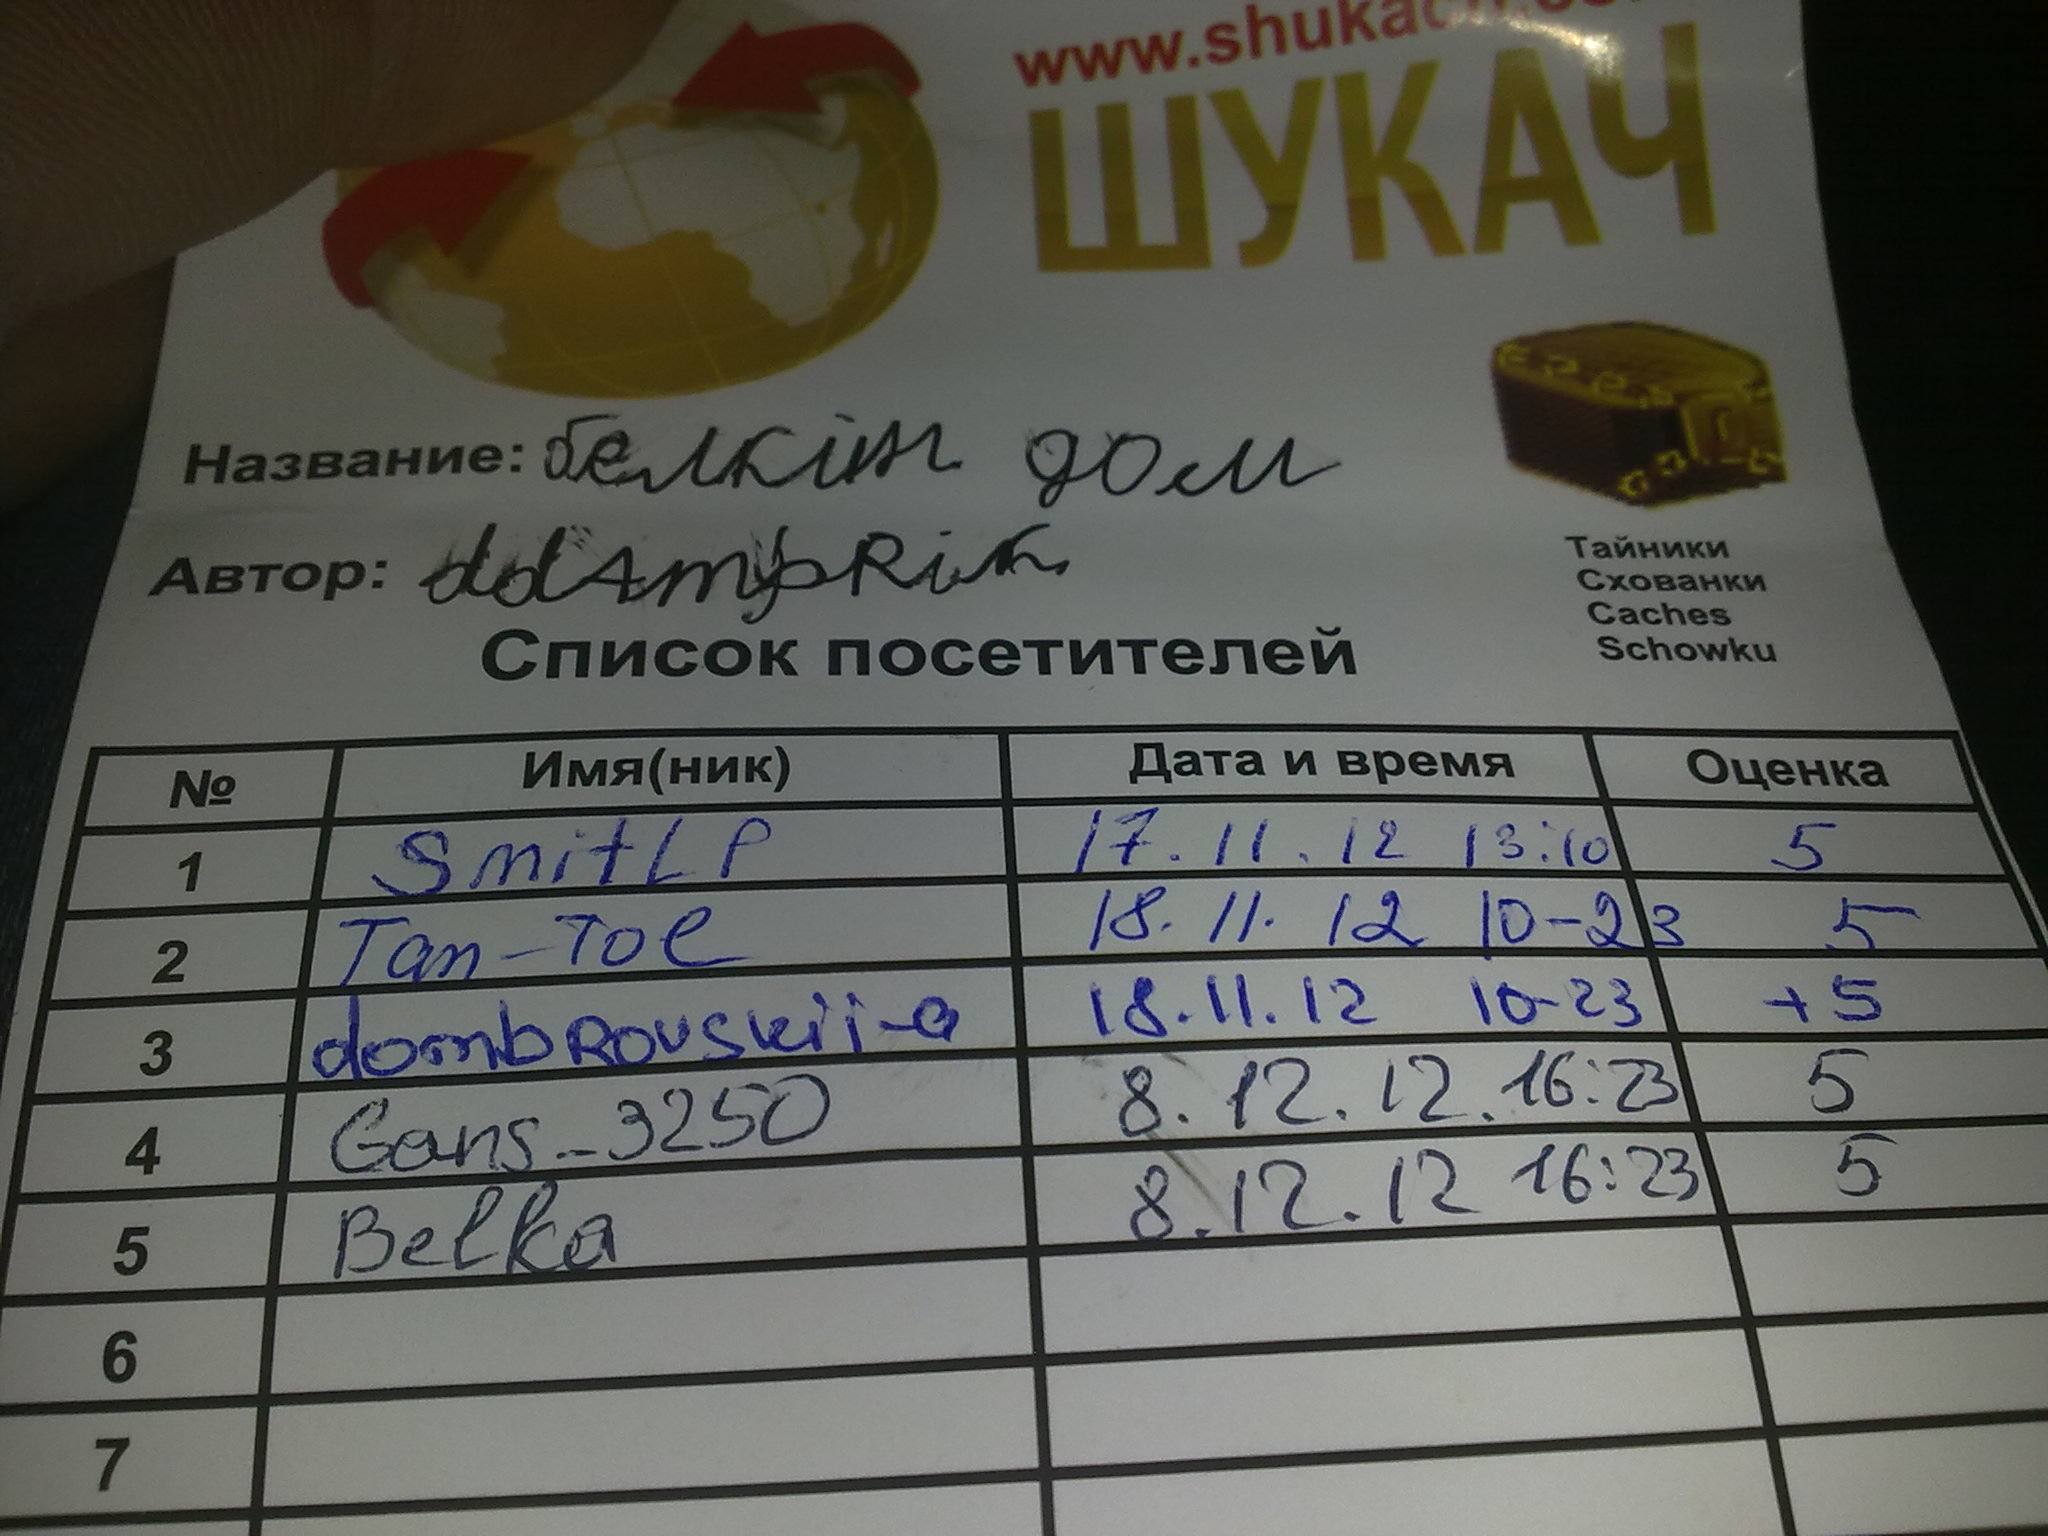 www.shukach.co
ШУКАЧ
Название: белкін дом
Автор:
Тайники
Схованки
Caches
Schowku
Список посетителей
№ Имя(ник) Дата и время Оценка
1 SmitLP 17.11.12 13:10 5
2 Tan-Tol 18.11.12 10-23 5
3 dombrovskii-a 18.11.12 10-23 +5
4 Gans_3250 8.12.12. 16:23 5
5 Belka 8.12.12 16:23 5
6
7